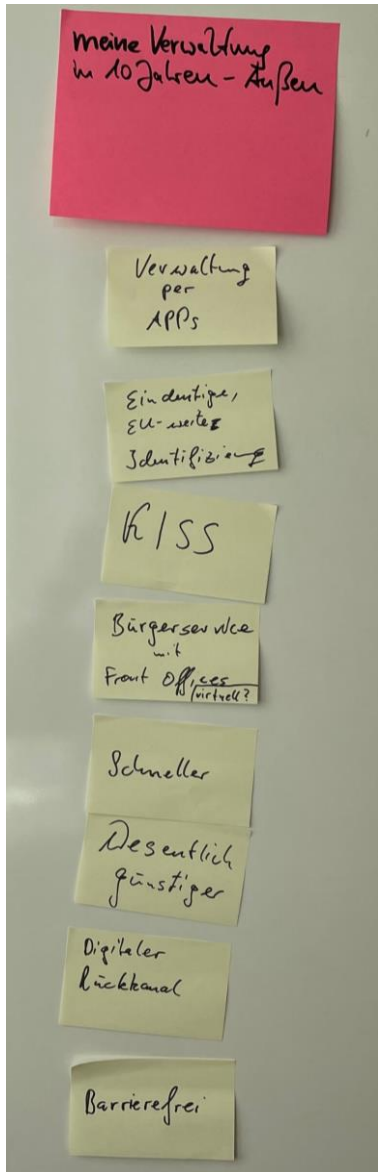 meine Verwaltung
in 10 Jahren - Außen
Verwaltung
per
APPs
Eindeutige,
EU-weite
Identifizierung
KISS
Bürgerservice
mit
Front Offices
(virtuell?
Schneller
Wesentlich
günstiger
Digitaler
Rückkanal
Barrierefrei